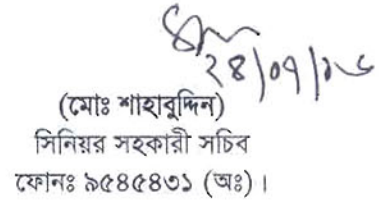 ২৪/০৭/১৬
(মোঃ শাহাবুদ্দিন)
সিনিয়র সহকারী সচিব
ফোনঃ ৯৫৪৫৪৩১ (অঃ)।